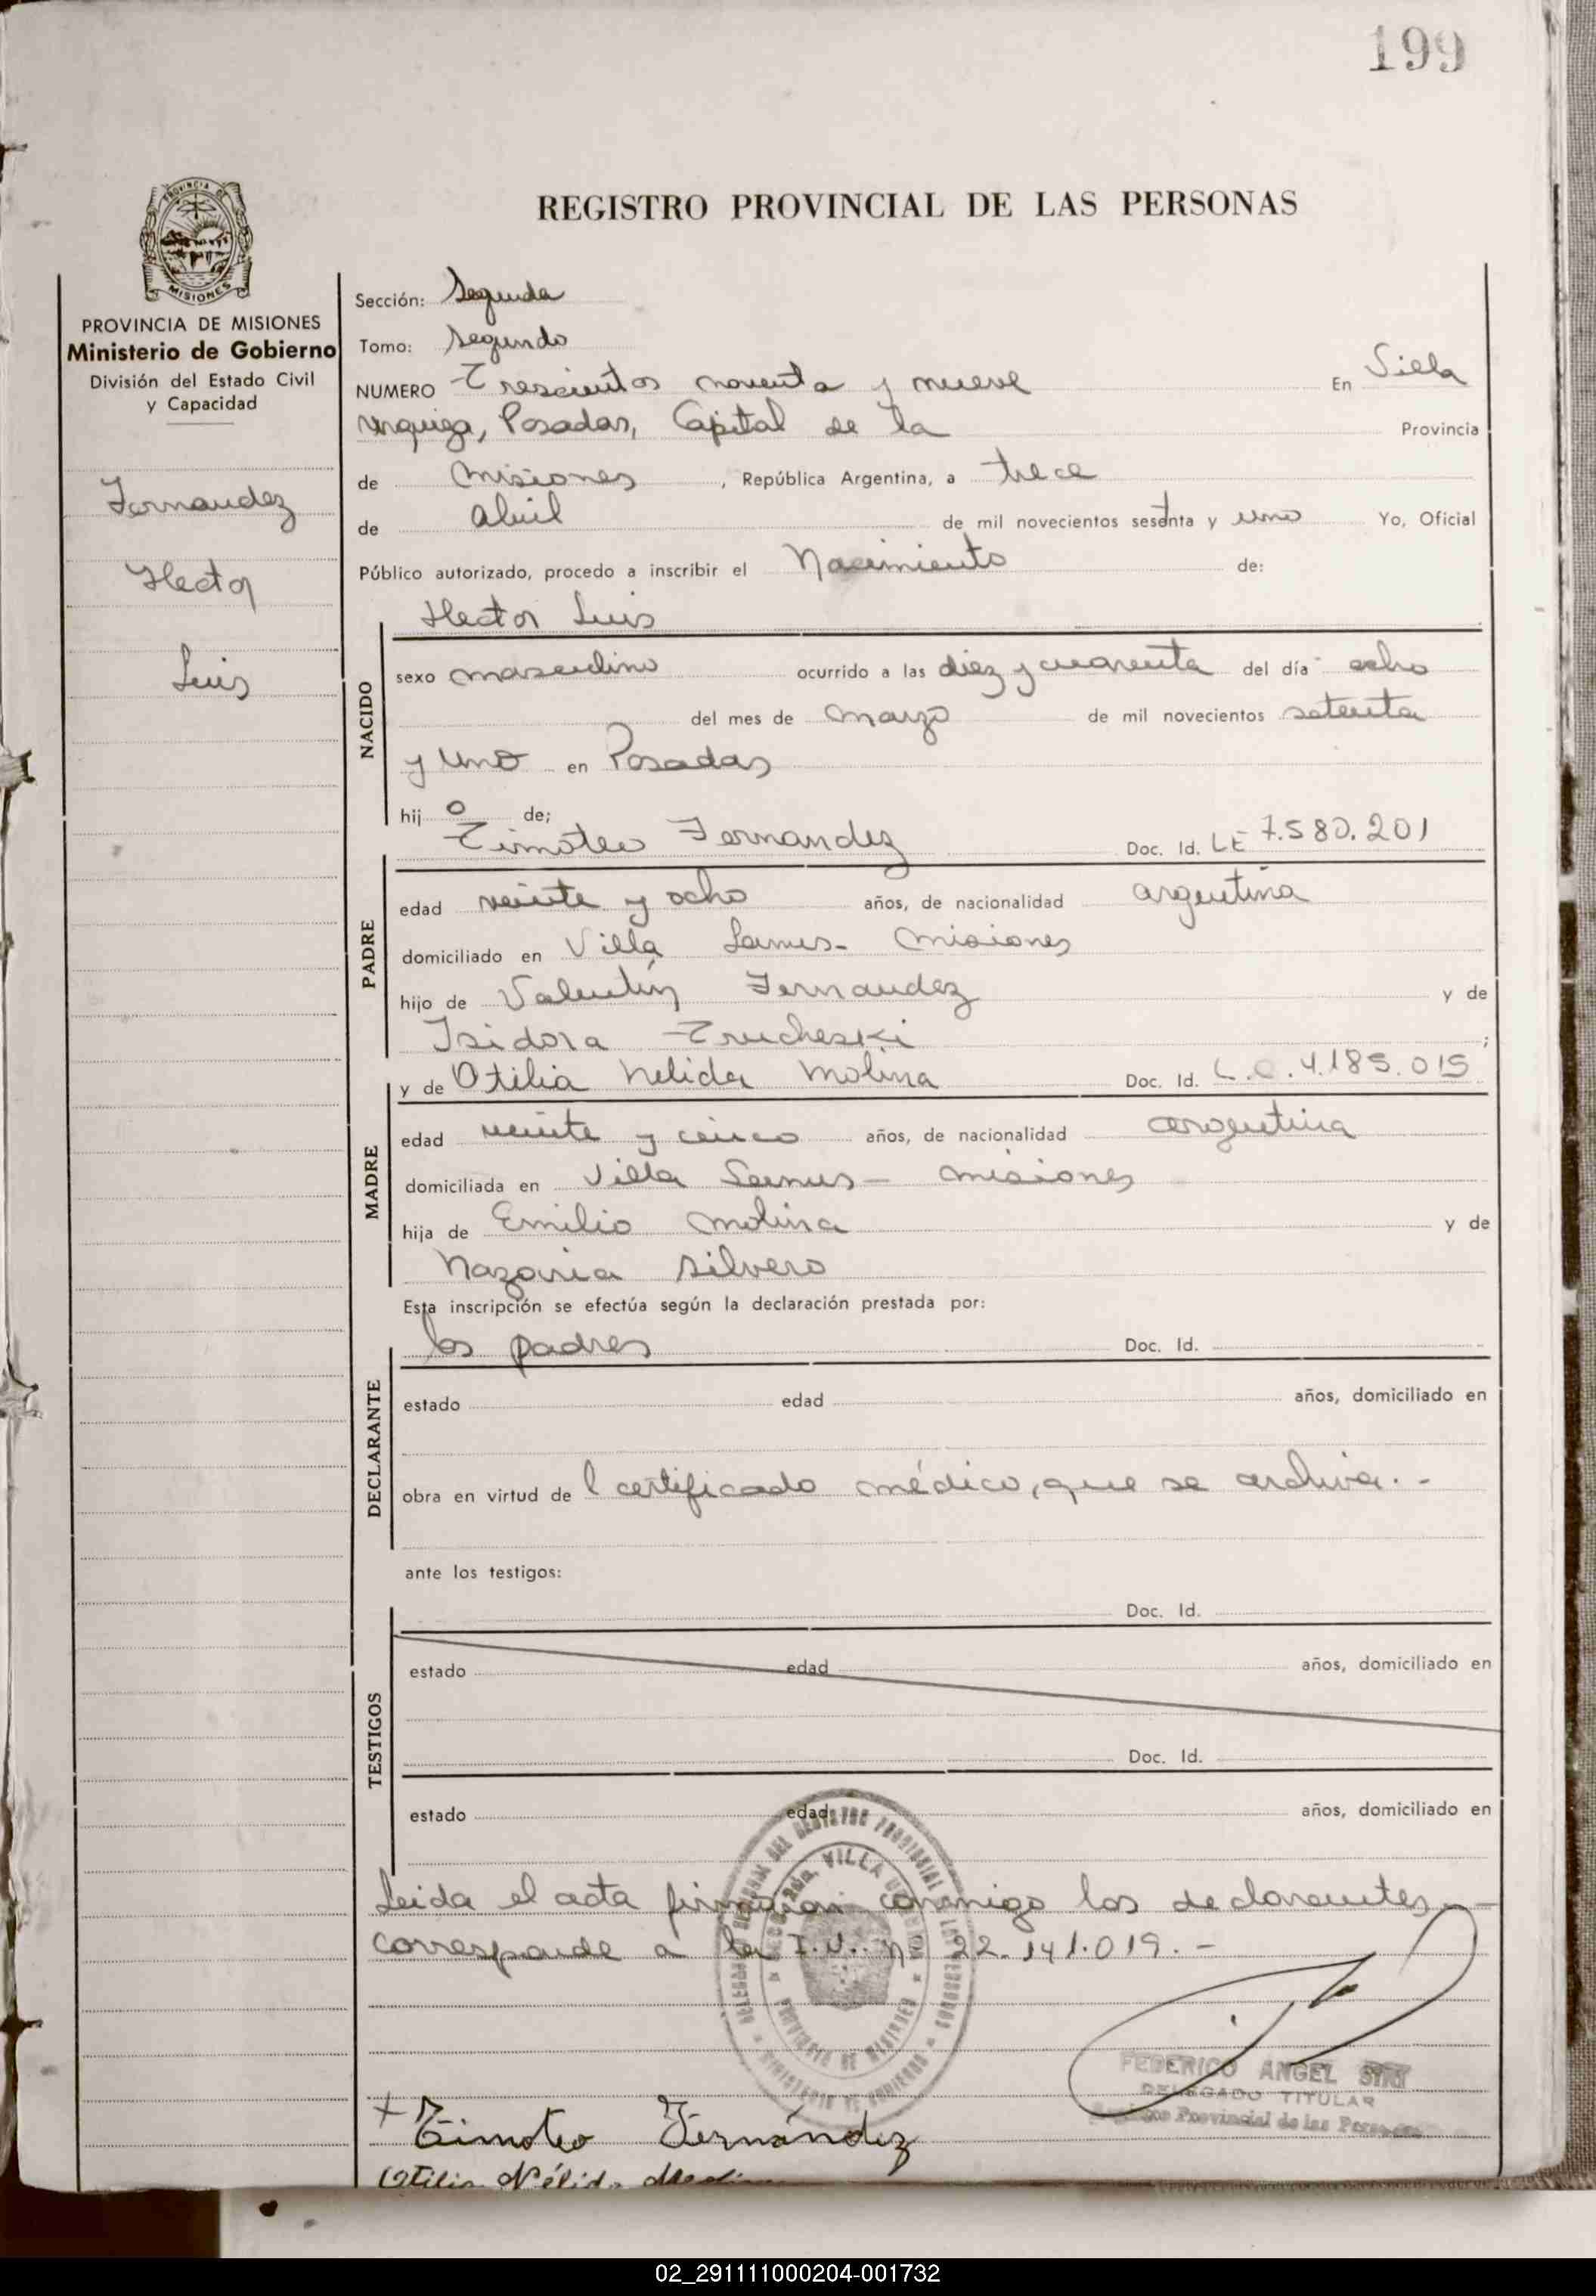 199
REGISTRO PROVINCIAL DE LAS PERSONAS
PROVINCIA DE MISIONES
PROVINCIA DE MISIONES
Ministerio de Gobierno
División del Estado Civil
y Capacidad
Fernandez
Hector
Luis
Sección: Segunda
Tomo: Segundo
NUMERO Trescientos noventa y nueve En Villa
Urquiza, Posadas, Capital de la Provincia
de Misiones, República Argentina, a trece
de abril de mil novecientos sesenta y uno Yo, Oficial
Público autorizado, procedo a inscribir el Nacimiento de:
Hector Luis
NACIDO
sexo masculino ocurrido a las diez y cuarenta del día ocho
del mes de marzo de mil novecientos setenta
y uno en Posadas
hijo de;
Timoteo Fernandez Doc. Id. LE 7.580.201
PADRE
edad veinte y ocho años, de nacionalidad argentina
domiciliado en Villa Lanus- Misiones
hijo de Valentín Fernandez y de
Isidora Trucheski;
y de Otilia Nelida Molina Doc. Id. L.C.4.185.015
MADRE
edad veinte y cinco años, de nacionalidad argentina
domiciliada en Villa Lanus- Misiones
hija de Emilio Molina y de
Nazaria Silvero
Esta inscripción se efectúa según la declaración prestada por:
los padres Doc. Id.
DECLARANTE
estado edad años, domiciliado en
obra en virtud del certificado médico, que se archiva.-
ante los testigos:
Doc. Id.
TESTIGOS
estado edad años, domiciliado en
Doc. Id.
estado edad años, domiciliado en
Leida el acta firmaron conmigo los declarantes.-
corresponde a la I.N. nº 22.141.019.-
VILLA URQUIZA
PROVINCIA DE MISIONES
MINISTERIO DE GOBIERNO
FEDERICO ANGEL
DELEGADO TITULAR
Registro Provincial de las Personas
Timoteo Fernández
Otilia Nélida Molina
02_291111000204-001732